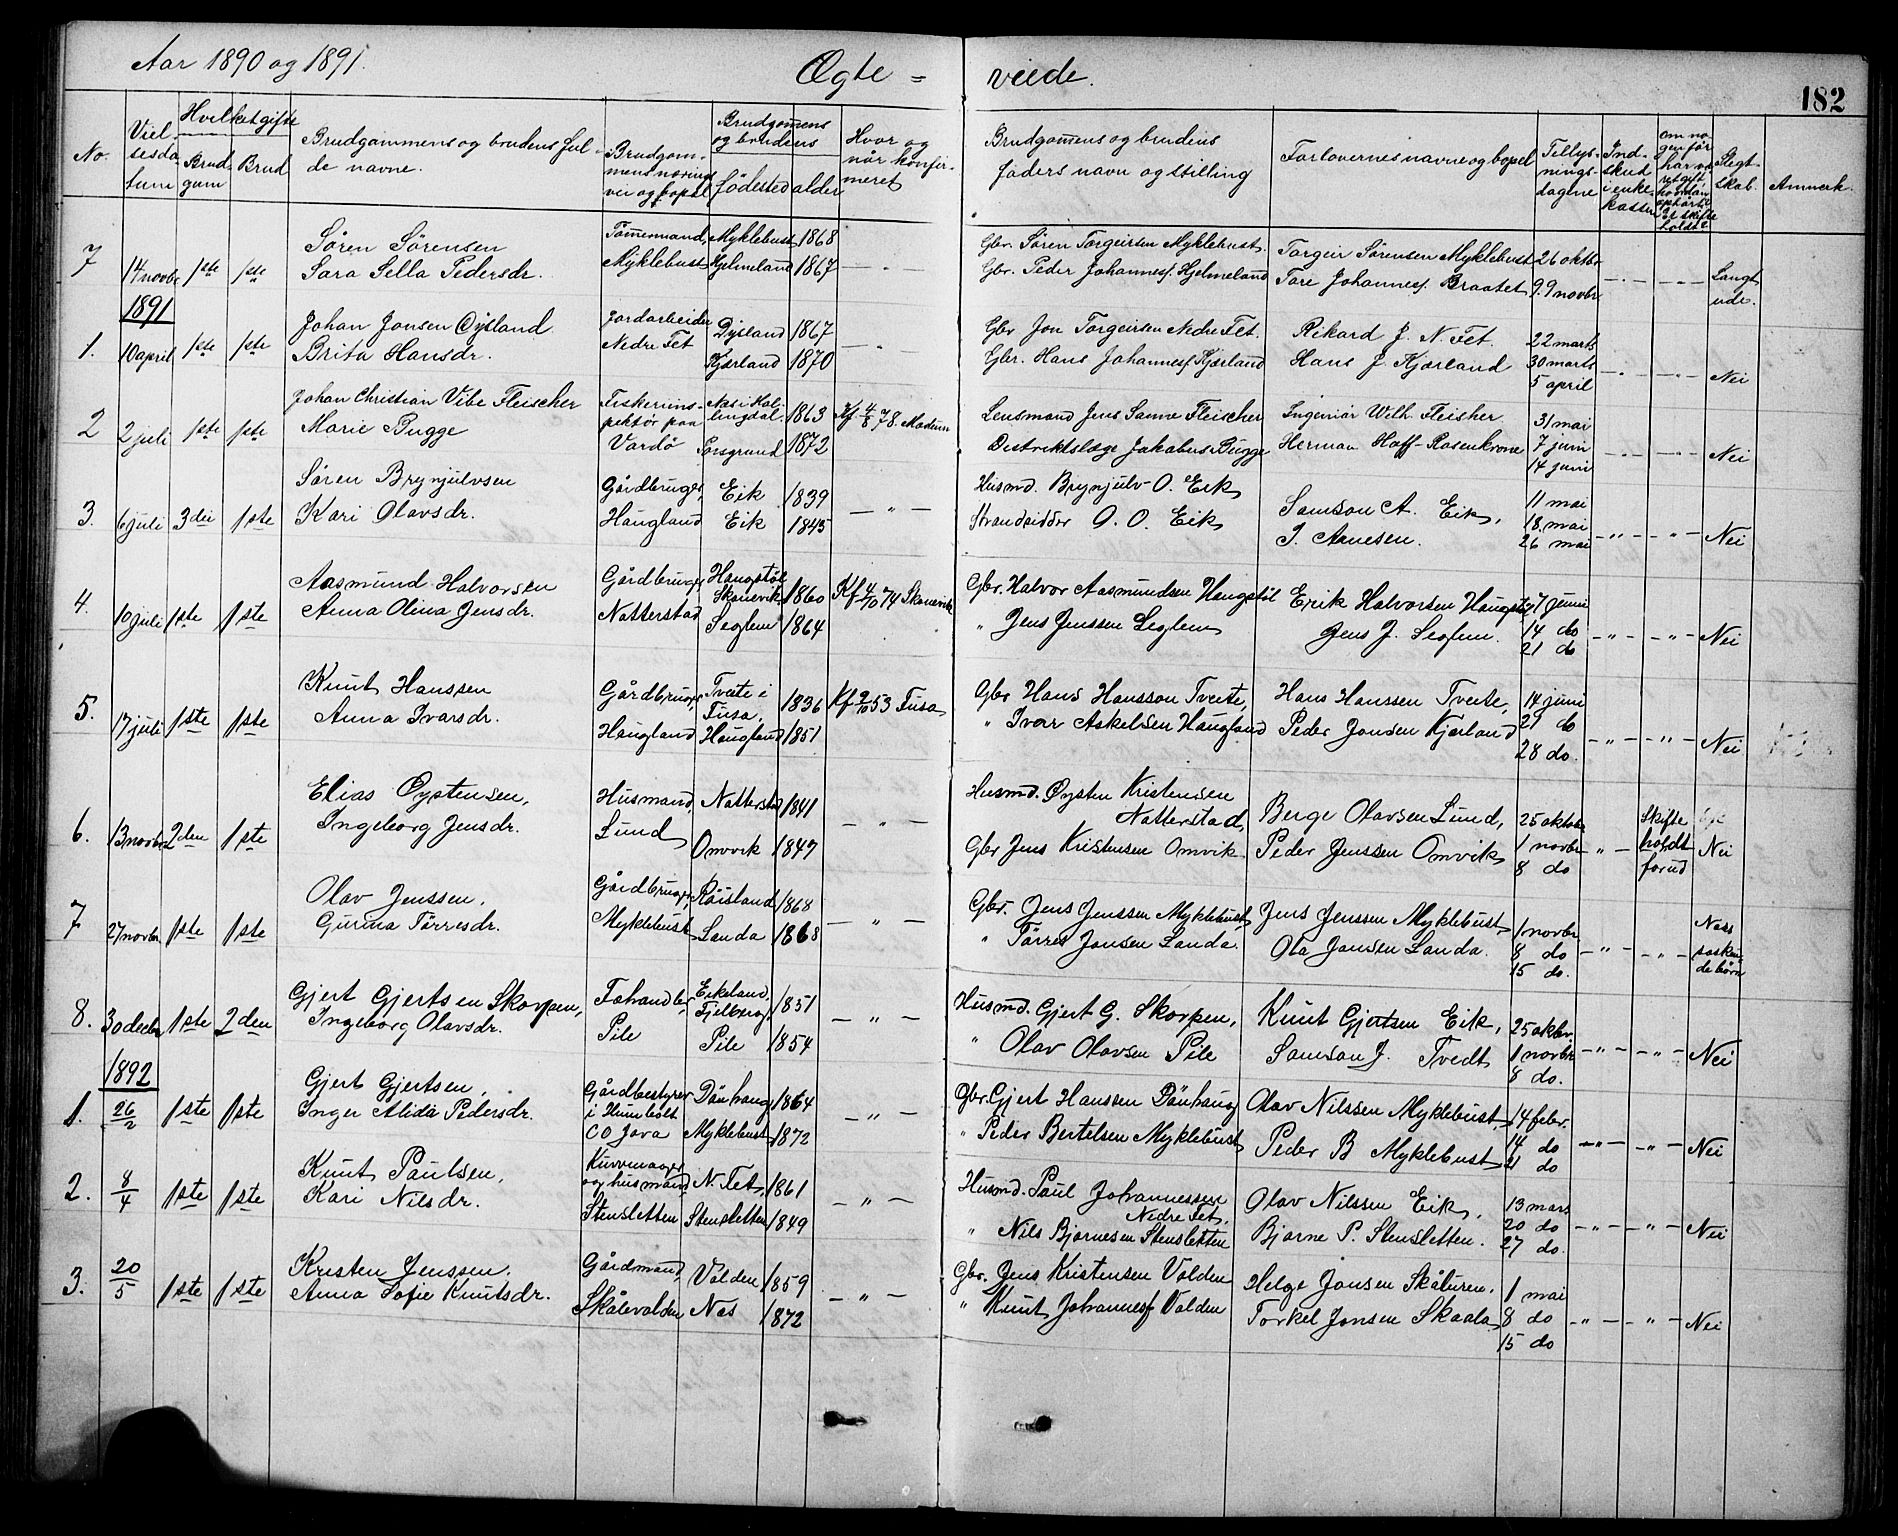 Aar 1890 og 1891.
Ægte = viede.
182
No.
Viel-
sesda
tum
Hvilket gifte
Brud
gum
Brud
Brudgommens og brudens ful-
de navne.
Brudgom-
mens nærings
vei og bopel
Brudgomens
og brudens
fødested
alder
Hvor og
når konfir-
meret
Brudgommens og brudens
faders navn og stilling
Forlovernes navne og bopel
Tillys-
nings-
dagene
Ind-
skud
i enke-
kassen
om no
gen før
har væ
ret gift
hvordan
ophørte
Er skifte
holdt
Slegt
skab.
Anmerk.
7 14 novbr 1ste 1ste
Søren Sørensen Tømmermand, Myklebust 1868 Gbr. Søren Torgeirsen Myklebust Torgeir Sørensen Myklebust 26 oktbr
Sara Sella Pedersdr. Myklebust Hjelmeland 1867 - " - Gbr. Peder Johannesf. Hjelmeland Tore Johannesf. Braatet 9. 9 novbr Langt
ude.
1891
1. 10 april 1ste 1ste
Johan Jonsen Øysland Jordarbeider Øysland 1867 Gbr Jon Torgeirsen Nedre Fet. Rikard J. N. Fet. 22 marts
Brita Hansdr. Nedre Fet Kjærland 1870 - " - Gbr. Hans Johannesf. Kjærland Hans J. Kjærland 30 marts
5 april Nei
2 2 juli 1ste 1ste
Johan Christian Vibe Fleischer Fiskeriins- Næs i Hal- 1863 Kf 4/8 78 Modum Lensmand Jens Sanne Fleischer Ingeniør Wilh. Fleisher 31 mai
pektør paa lingdal
Marie Bugge Vardø Porsgrund 1872 Distriktslæge Jakobus Bugge Herman Hoff-Rosenkrone 7 juni
14 juni Nei
3. 6 juli 3die 1ste
Søren Brynjulvsen Gårdbruger, Eik 1839 Husmd. Brynjulv O. Eik Samson A. Eik, 11 mai
Kari Olavsdr. Haugland Eik 1845 - " - Strandsidder O. O. Eik J. Aanesen. 18 mai
26 mai - " - - " - Nei
4. 10 juli 1ste 1ste
Aasmund Halvorsen Gårdbruger Haugstøl Skånevik 1860 Kf 4/10 74 Skånevik Gbr. Halvor Aasmundsen Haugstøl Erik Halvorsen Haugstøl 7 juni
Anna Olina Jensdr. Natterstad Seglem 1864 " Jens Jenssen Seglem Jens J. Seglem. 14 do
21 do - " - - " - Nei
5. 17 juli 1ste 1ste
Knut Hanssen Gårdbruger Tveite i Fusa, 1836 Kf 2/10 53 Fusa Gbr Hans Hansson Tveite, Hans Hanssen Tveite, 14 juni
Anna Ivarsdr. Haugland Haugland 1851 " Ivar Askelsen Haugland Peder Jonsen Kjærland 21 do
28 do. - " - - " - Nei
6. 13 novbr 2den 1ste
Elias Øystensen, Husmand, Natterstad 1841 Husmd. Øysten Kristensen Natterstad, Berge Olavsen Lund, 25 oktbr Skifte
Ingeborg Jensdr. Lund Omvik 1847 - " - Gbr Jens Kristensen Omvik Peder Jenssen Omvik 1 novbr - " - holdt Nei
8 do forud
7 27 novbr. 1ste 1ste
Olav Jenssen, Gårdbruger, Røisland 1868 Gbr. Jens Jenssen Myklebust, Jens Jenssen Myklebust, 1 novbr Næs
Gurina Tørresdr. Myklebust Landa 1868 - " - " Tørres Jonsen Landa. Ola Jonsen Landa. 8 do - " - - " - søsken
15 do. de børn
8. 30 decbr 1ste 2den
Gjert Gjertsen Skorpen, Fæhandler, Eikeland, Fjelberg 1851 Husmd. Gjert G. Skorpen, Knut Gjertsen Eik, 25 oktbr.
Ingeborg Olavsdr. Pile Pile 1854 - " - " Olav Olavsen Pile Samson J. Tvedt 1 novbr
8 do. - " - - " - Nei
1892
1. 26/2 1ste 1ste
Gjert Gjertsen, Gårdbestyrer Dønhaug 1864 Gbr. Gjert Hanssen Dønhaug Olav Nilssen Myklebust, 14 febr.
Inger Alida Pedersdr. i Humbolt CO Java Myklebust 1872 - " - " Peder Bertelsen Myklebust Peder B Myklebust 14 do
21 do - " - - " - Nei
2. 8/4 1ste 1ste
Knut Paulsen, Kurvemager og husmand, N. Fet, 1861 Husmd. Paul Johannessen Nedre Fet, Olav Nilssen Eik, 13 mars
Kari Nilsdr. Stensletten Stensletten 1849 - " - " Nils Bjørnesen Stensletten Bjørne P. Stensletten. 20 do
27 do. - " - - " - Nei
3. 20/5 1ste 1ste
Kristen Jenssen. Gårdmand, Valden 1859 Gbr. Jens Kristensen Valden Helge Jonsen Skåluren. 1 mai
Anna Sofie Knutsdr. Skålevalden Næs 1872 - " - " Knut Johannesf Valden Torkel Jonsen Skaala 8 do
15 do - " - - " - Nei